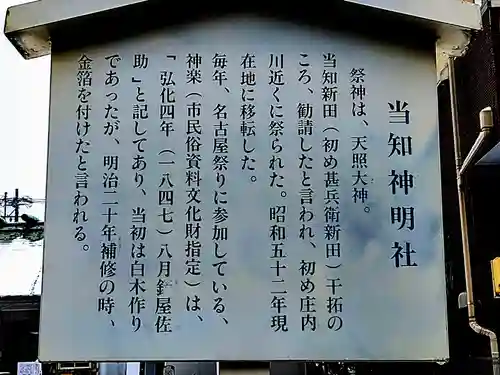 当知神明社
祭神は、天照大神。
当知新田(初め甚兵衛新田)干拓の
ころ、勧請したと言われ、初め庄内
川近くに祭られた。昭和五十二年現
在地に移転した。
毎年、名古屋祭りに参加している、
神楽(市民俗資料文化財指定)は、
「弘化四年(一八四七)八月鈄屋佐
助」と記してあり、当初は白木作り
であったが、明治二十年補修の時、
金箔を付けたと言われる。